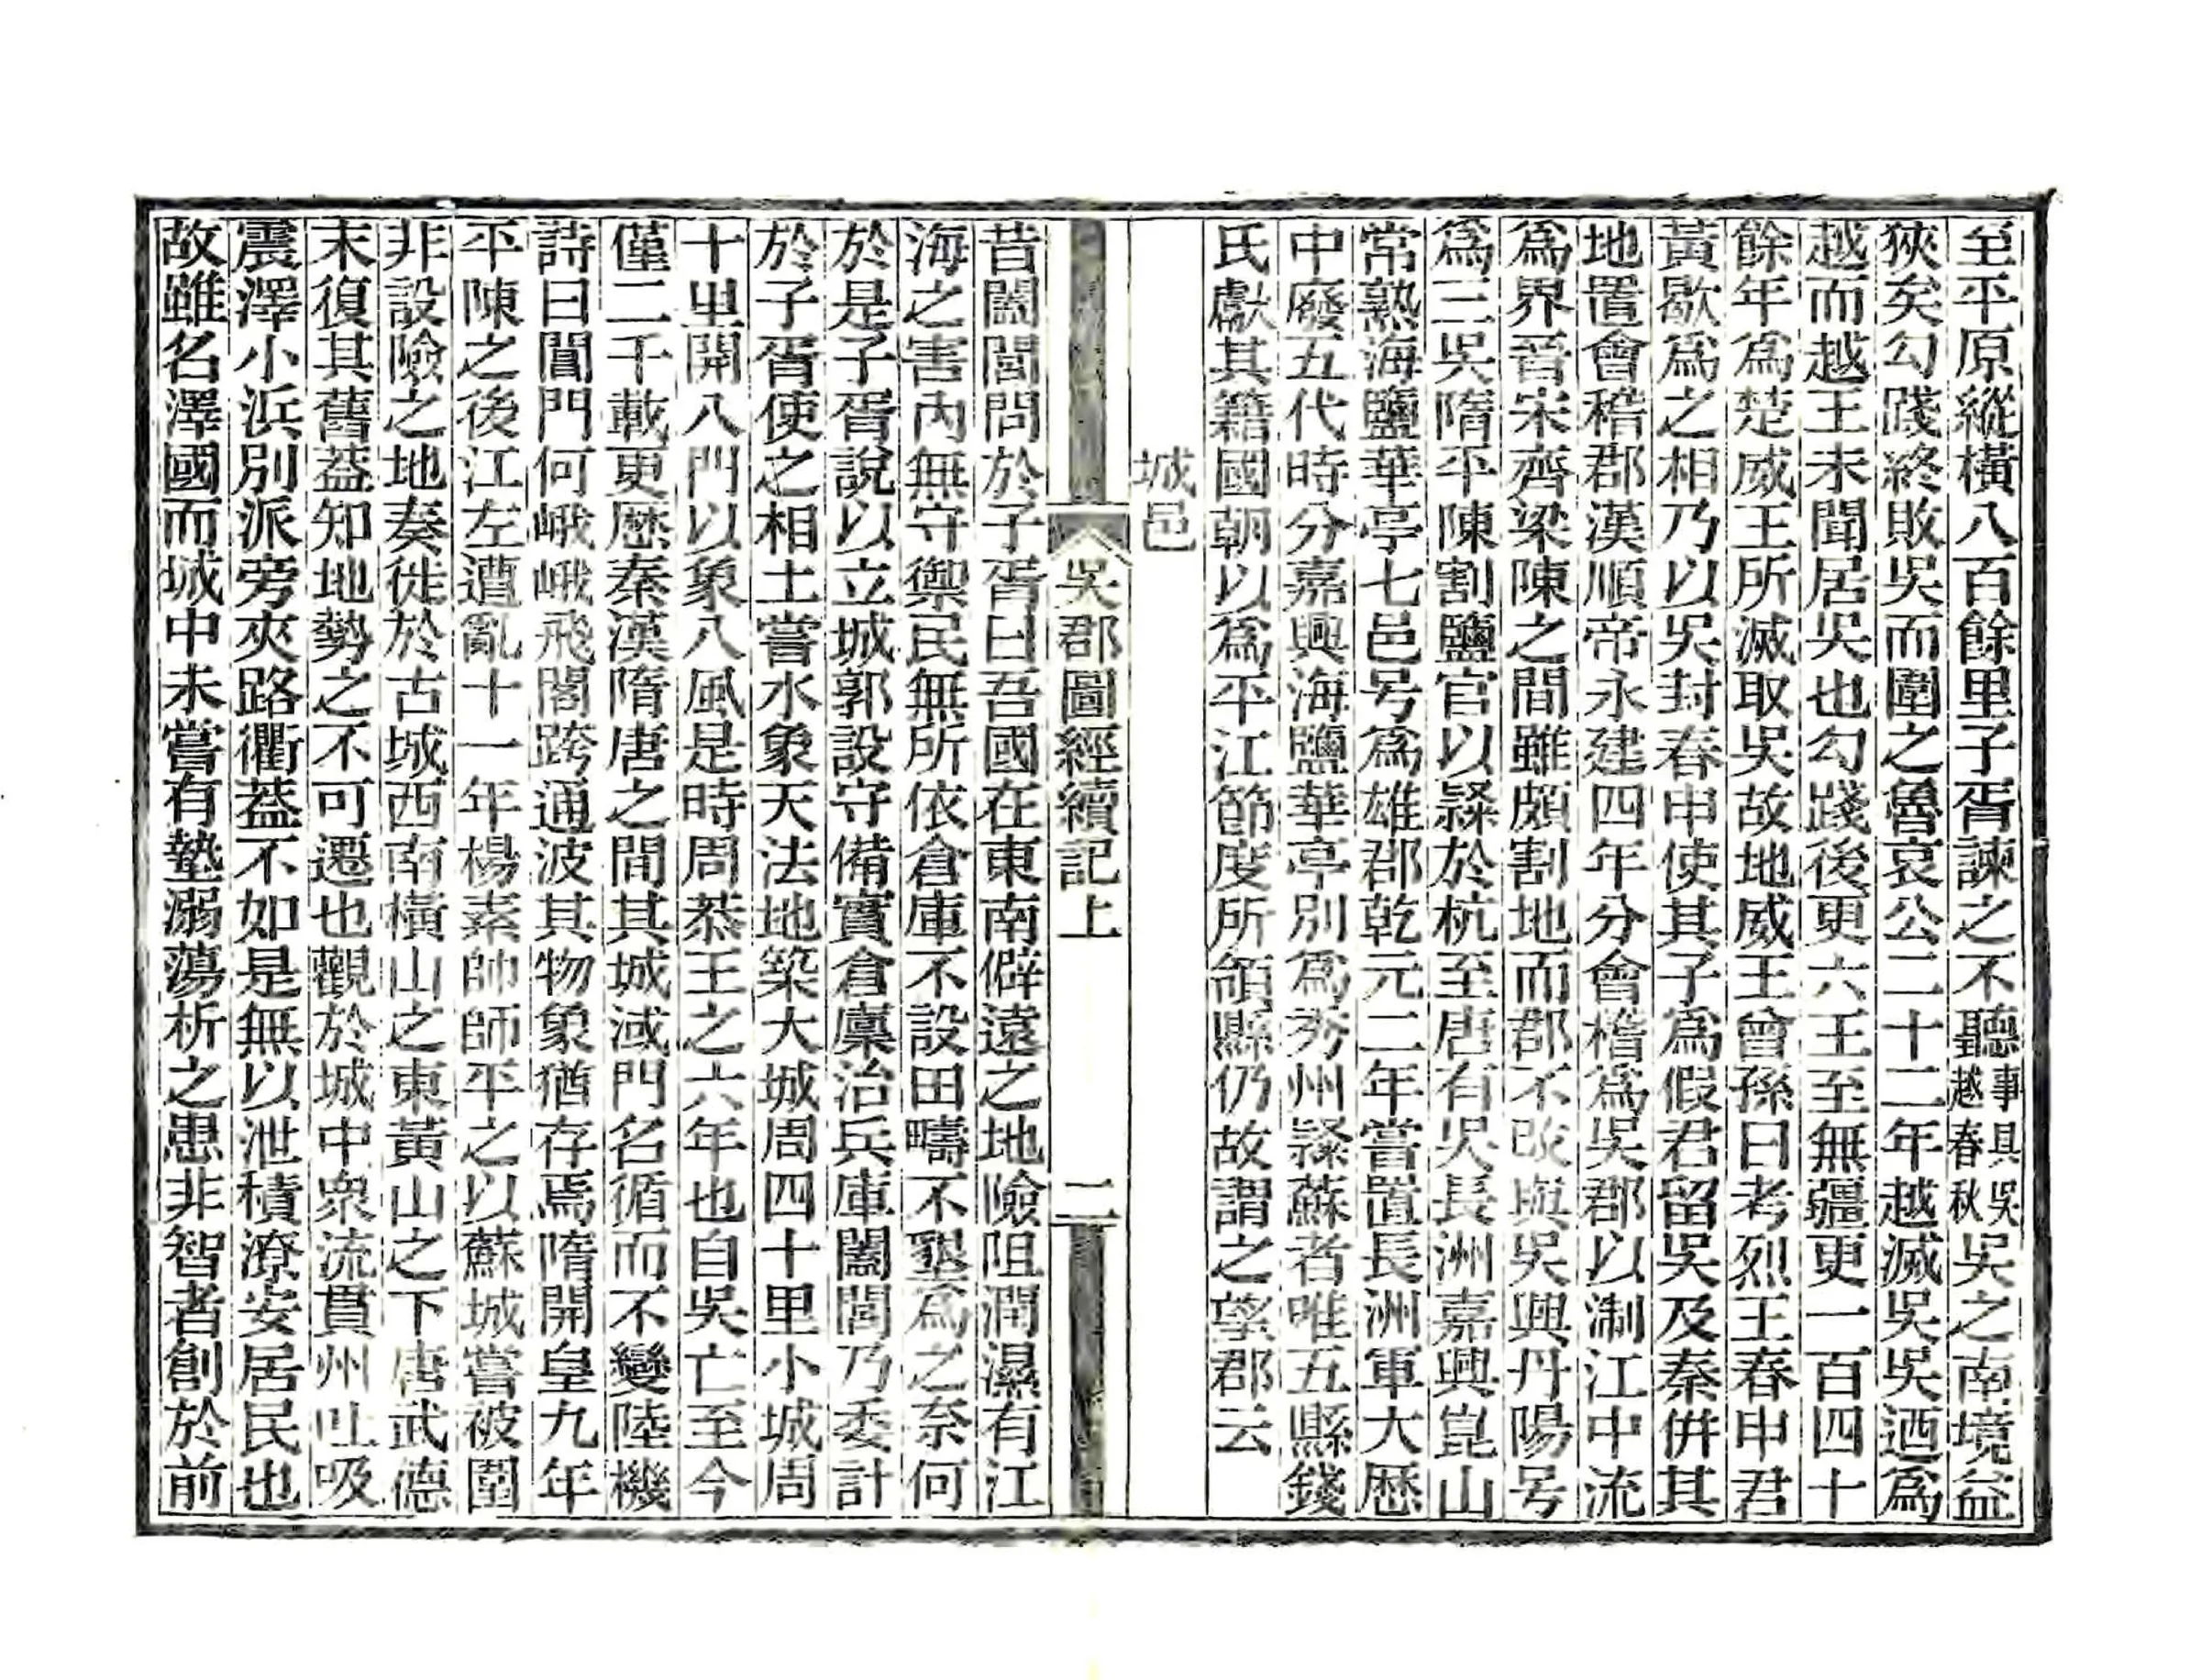 至平原縱橫八百餘里子胥諫之不聽事具吳越春秋吳之南境益
狹矣勾踐終敗吳而圍之魯哀公二十二年越滅吳吳迺爲
越而越王未聞居吳也勾踐後更六王至無疆更一百四十
餘年爲楚威王所滅取吳故地威王曾孫曰考烈王春申君
黃歇爲之相乃以吳封春申使其子爲假君留吳及秦併其
地置會稽郡漢順帝永建四年分會稽爲吳郡以淛江中流
爲界晉宋齊梁陳之間雖頗割地而郡不改與吳興丹陽号
爲三吳隋平陳割鹽官以繇於杭至唐有吳長洲嘉興崑山
常熟海鹽華亭七邑号爲雄郡乾元二年嘗置長洲軍大歷
中廢五代時分嘉興海鹽華亭別爲秀州繇蘇者唯五縣錢
氏獻其籍國朝以爲平江節度所領縣仍故謂之望郡云
城邑
吳郡圖經續記上
二
昔闔閭問於子胥曰吾國在東南僻遠之地險阻潤濕有江
海之害內無守禦民無所依倉庫不設田疇不墾爲之奈何
於是子胥說以立城郭設守備實倉廩治兵庫闔閭乃委計
於子胥使之相土嘗水象天法地築大城周四十里小城周
十里開八門以象八風是時周恭王之六年也自吳亡至今
僅二千載更歷秦漢隋唐之間其城洫門名循而不變陸機
詩曰閶門何峨峨飛閣跨通波其物象猶存焉隋開皇九年
平陳之後江左遭亂十一年楊素帥師平之以蘇城嘗被圍
非設險之地奏徙於古城西南橫山之東黃山之下唐武德
末復其舊葢知地勢之不可遷也觀於城中衆流貫州吐吸
震澤小浜別派旁夾路衢葢不如是無以泄積潦安居民也
故雖名澤國而城中未嘗有墊溺蕩析之患非智者創於前